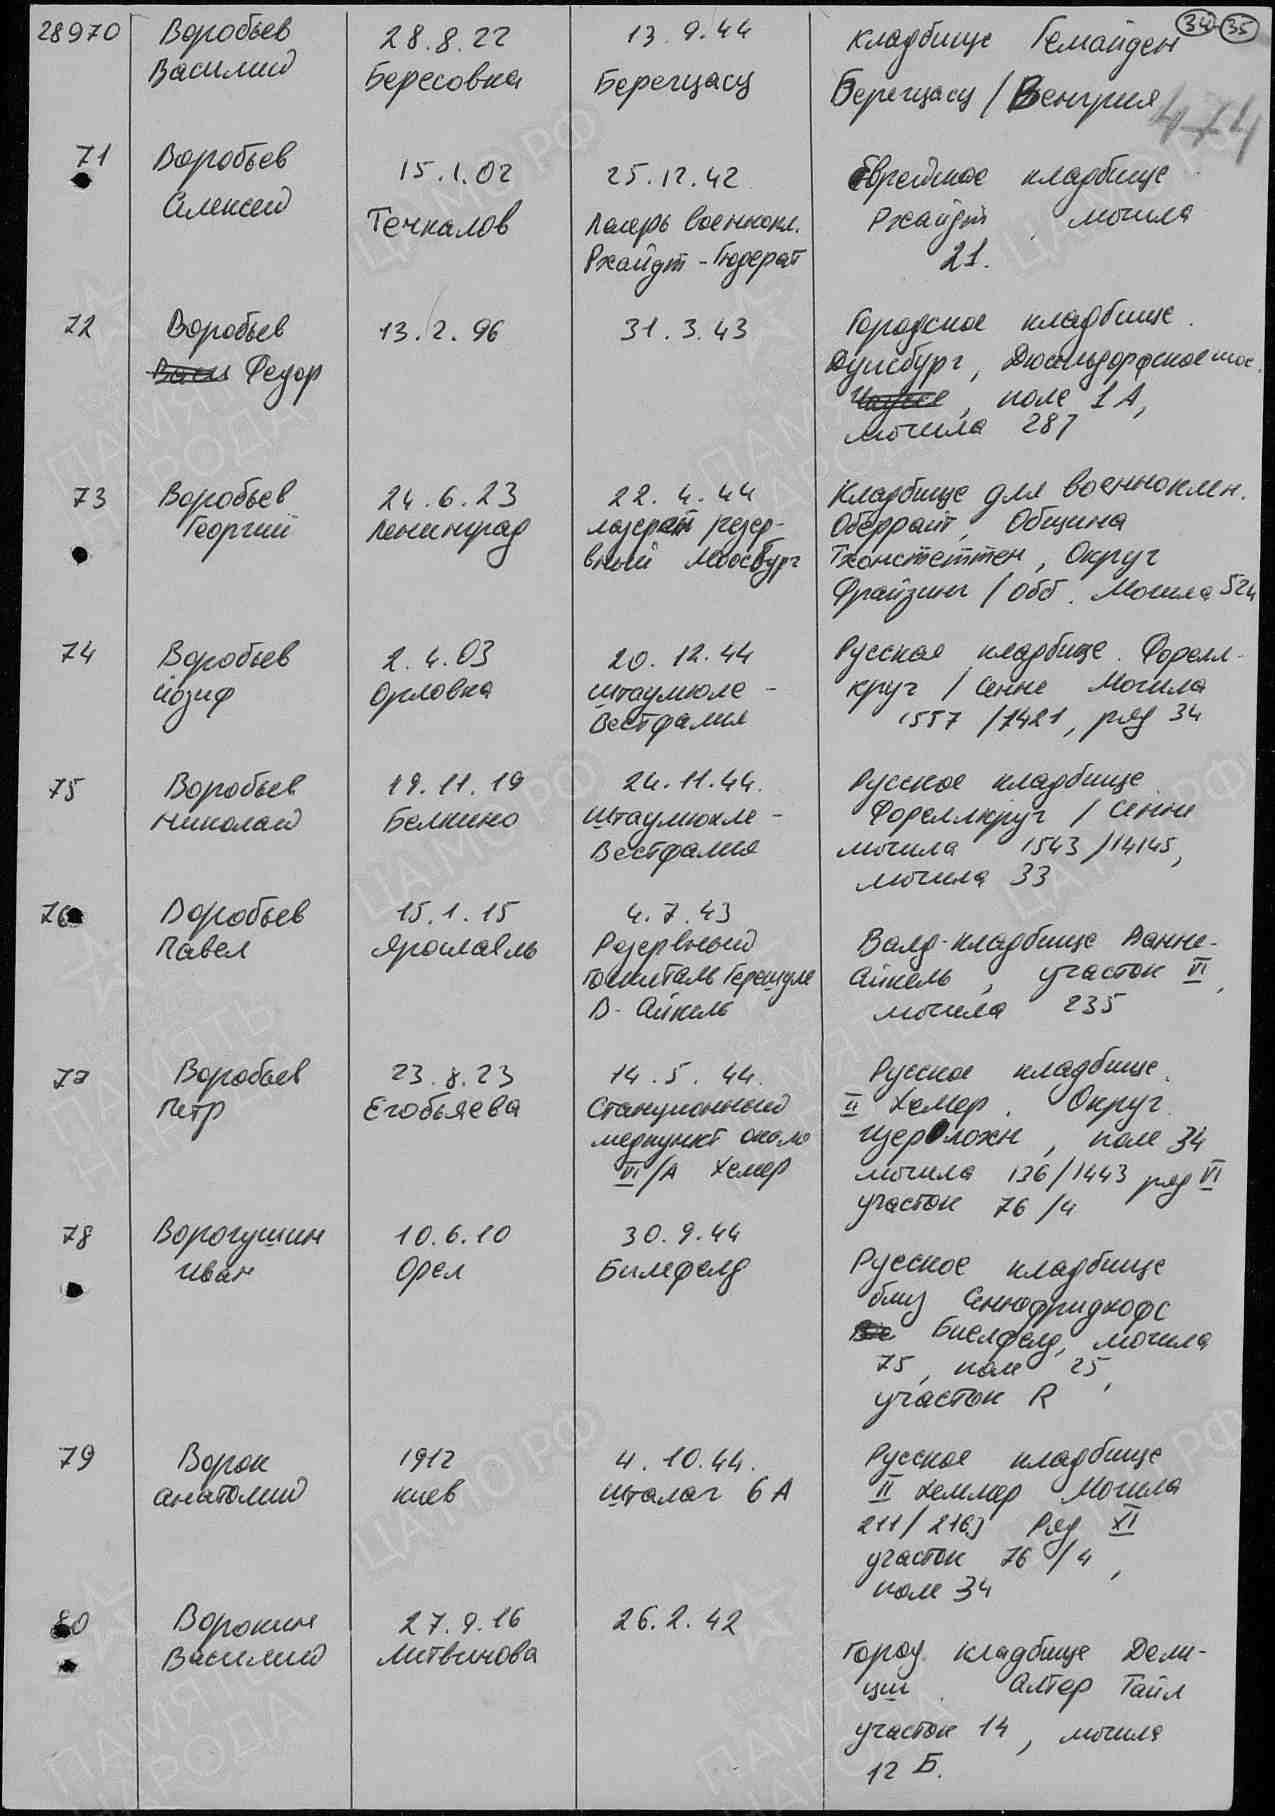 34 35
28970 Воробьев 28.8.22 13.9.44 кладбище Гемайден
Василий Бересовка Берегцасц Берегцасц / Венгрия
474
71 Воробьев 15.1.02 25.12.42 Еврейское кладбище
Алексей Течкалов Лагерь военнопл. Рхайдт, могила
Рхайдт - Гюдерат 21.
72 Воробьев 13.2.96 31.3.43 Городское кладбище.
Федор Дуисбург, Дюссельдорфское шос.
, поле 1А,
могила 287
73 Воробьев 24.6.23 22.4.44 Кладбище для военноплен.
Георгий Ленинград лазерет резер- Оберрайт, Община
вный Моосбург Тхонстеттен, Округ
Фрайзинг / Обб. Могила 524
74 Воробьев 2.4.03 20.12.44 Русское кладбище. Форелл-
Йозиф Орловка Штаумюле - круг / Сенне Могила
Вестфалия 1557 /7421, ряд 34
75 Воробьев 19.11.19 24.11.44. Русское кладбище
Николай Белкино Штаумюхле - Фореллкруг / Сенне
Вестфалия могила 1543/14145,
могила 33
76 Воробьев 15.1.15 4.7.43
Павел Ярославль Резервный Валд-кладбище Ванне-
госпиталь Айкель, участок VI,
В-Айкель могила 235
77 Воробьев 23.8.23 14.5.44. Русское кладбище.
Петр Егобьяева Станционный II Хемер. Округ
медпункт около Изерлохн, поле 34
VI/А Хемер могила 136/1443 ряд VI
участок 76/4
78 Ворогушин 10.6.10 30.9.44
Иван Орел Билефелд Русское кладбище
близ Сеннефридхофс
Биелфелд, могила
75, поле 25,
участок R
79 Ворок 1912 4.10.44. Русское кладбище
Анатолий Киев Шталаг 6А II Хеммер Могила
211/2163 Ряд XI
участок 76/4,
поле 34
80 Воронин 27.9.16 26.2.42
Василий Литвинова Город. кладбище Дели-
цш. Алтер Тайл
участок 14, могила
12 Б.
ЦАМО РФ
ПАМЯТЬ НАРОДА